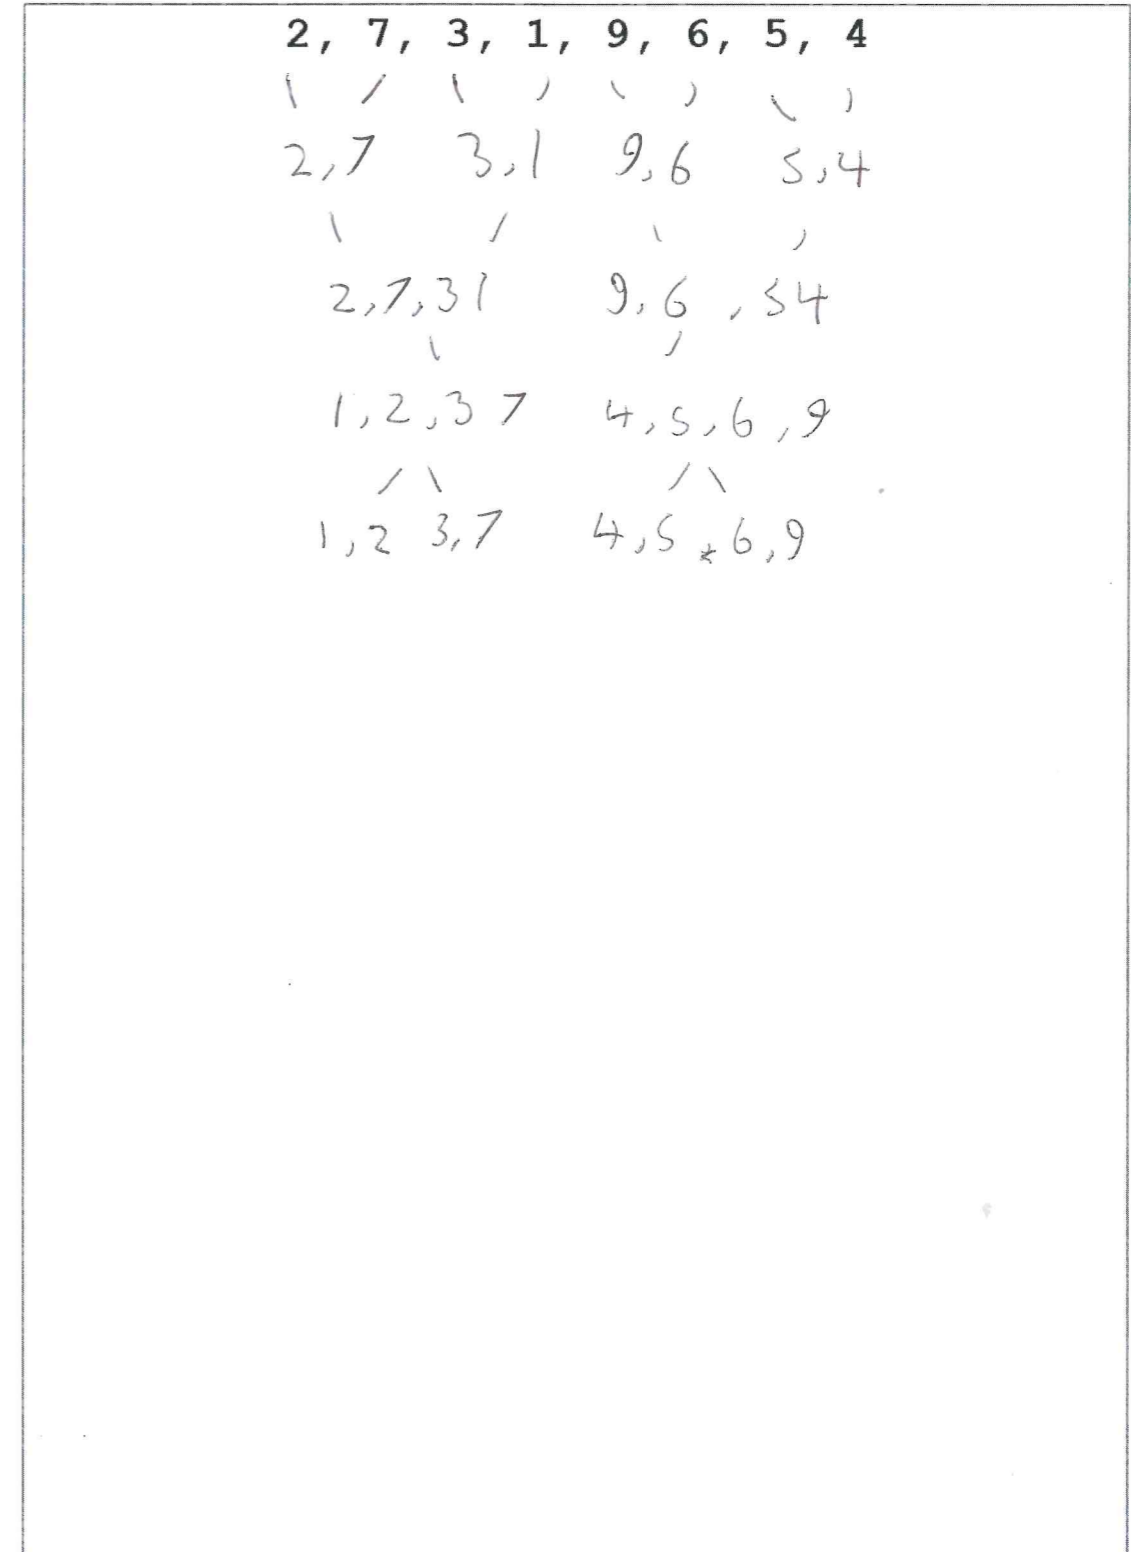 2, 7, 3, 1, 9, 6, 5, 4
2,7 3,1 9,6 5,4
2,7,31 9,6 ,54
1,2,3 7 4,5,6,9
1,2 3,7 4,5 6,9